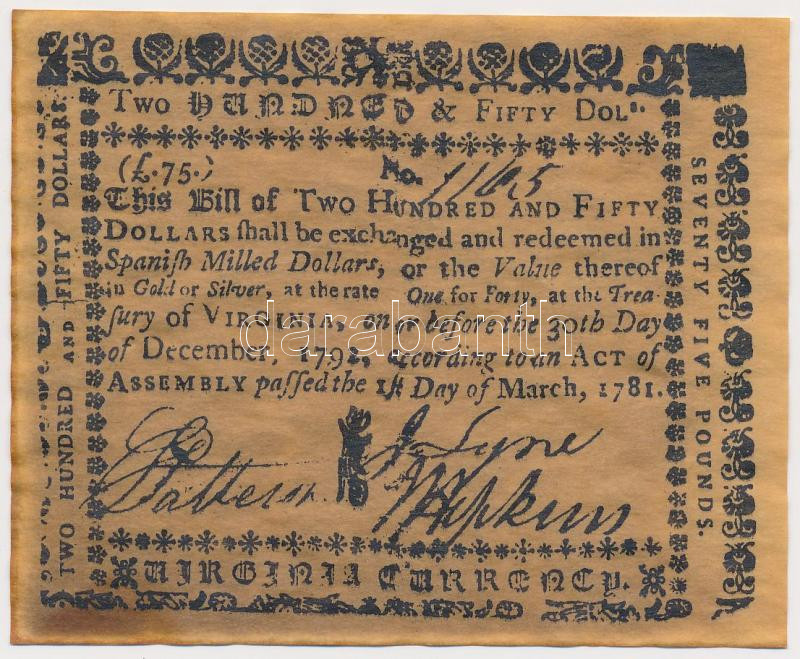 Two HUNDRED & FIFTY DOLRS
(£.75.) No. 1165
This Bill of TWO HUNDRED AND FIFTY
DOLLARS ſhall be exchanged and redeemed in
Spaniſh Milled Dollars, or the Value thereof
in Gold or Silver, at the rate One for Forty, at the Trea-
ſury of VIRGINIA, on or before the 30th Day
of December, 1792, according to an ACT of
ASSEMBLY paſſed the 1ſt Day of March, 1781.
J. Lyne
B Patterson
Hopkins
VIRGINIA CURRENCY.
TWO HUNDRED AND FIFTY DOLLARS
SEVENTY FIVE POUNDS.
darabanth